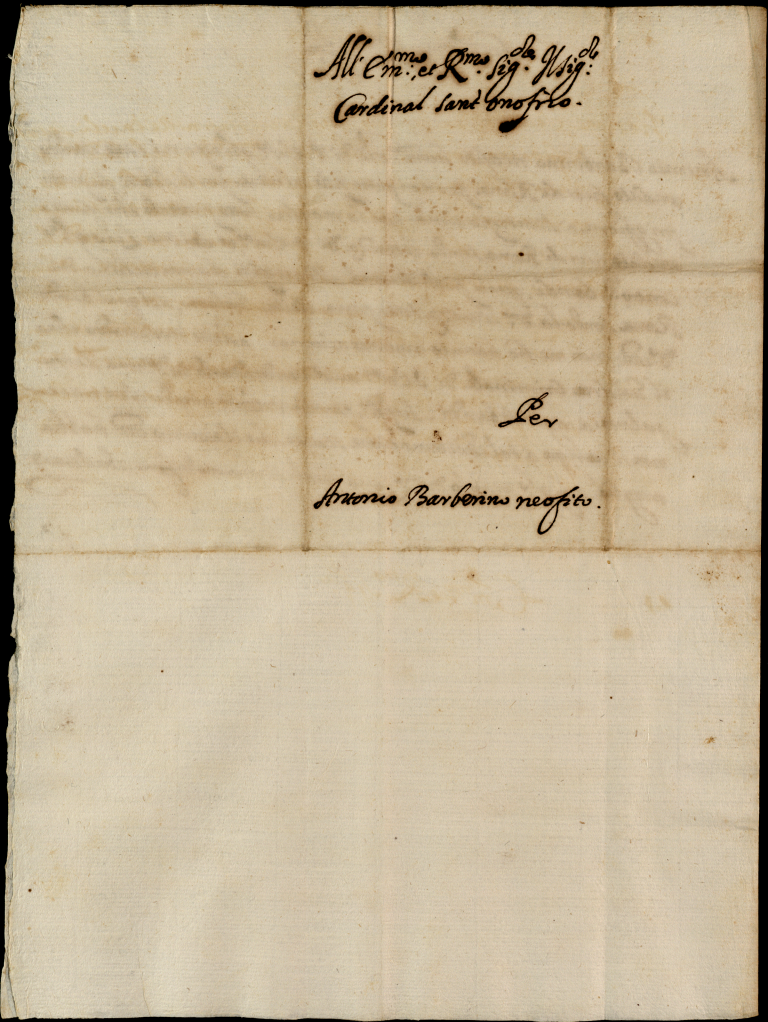 All' Em.mo et R.mo Sig.re Il sig.re
Cardinal sant' onofrio.
Per
Antonio Barberino neofito.